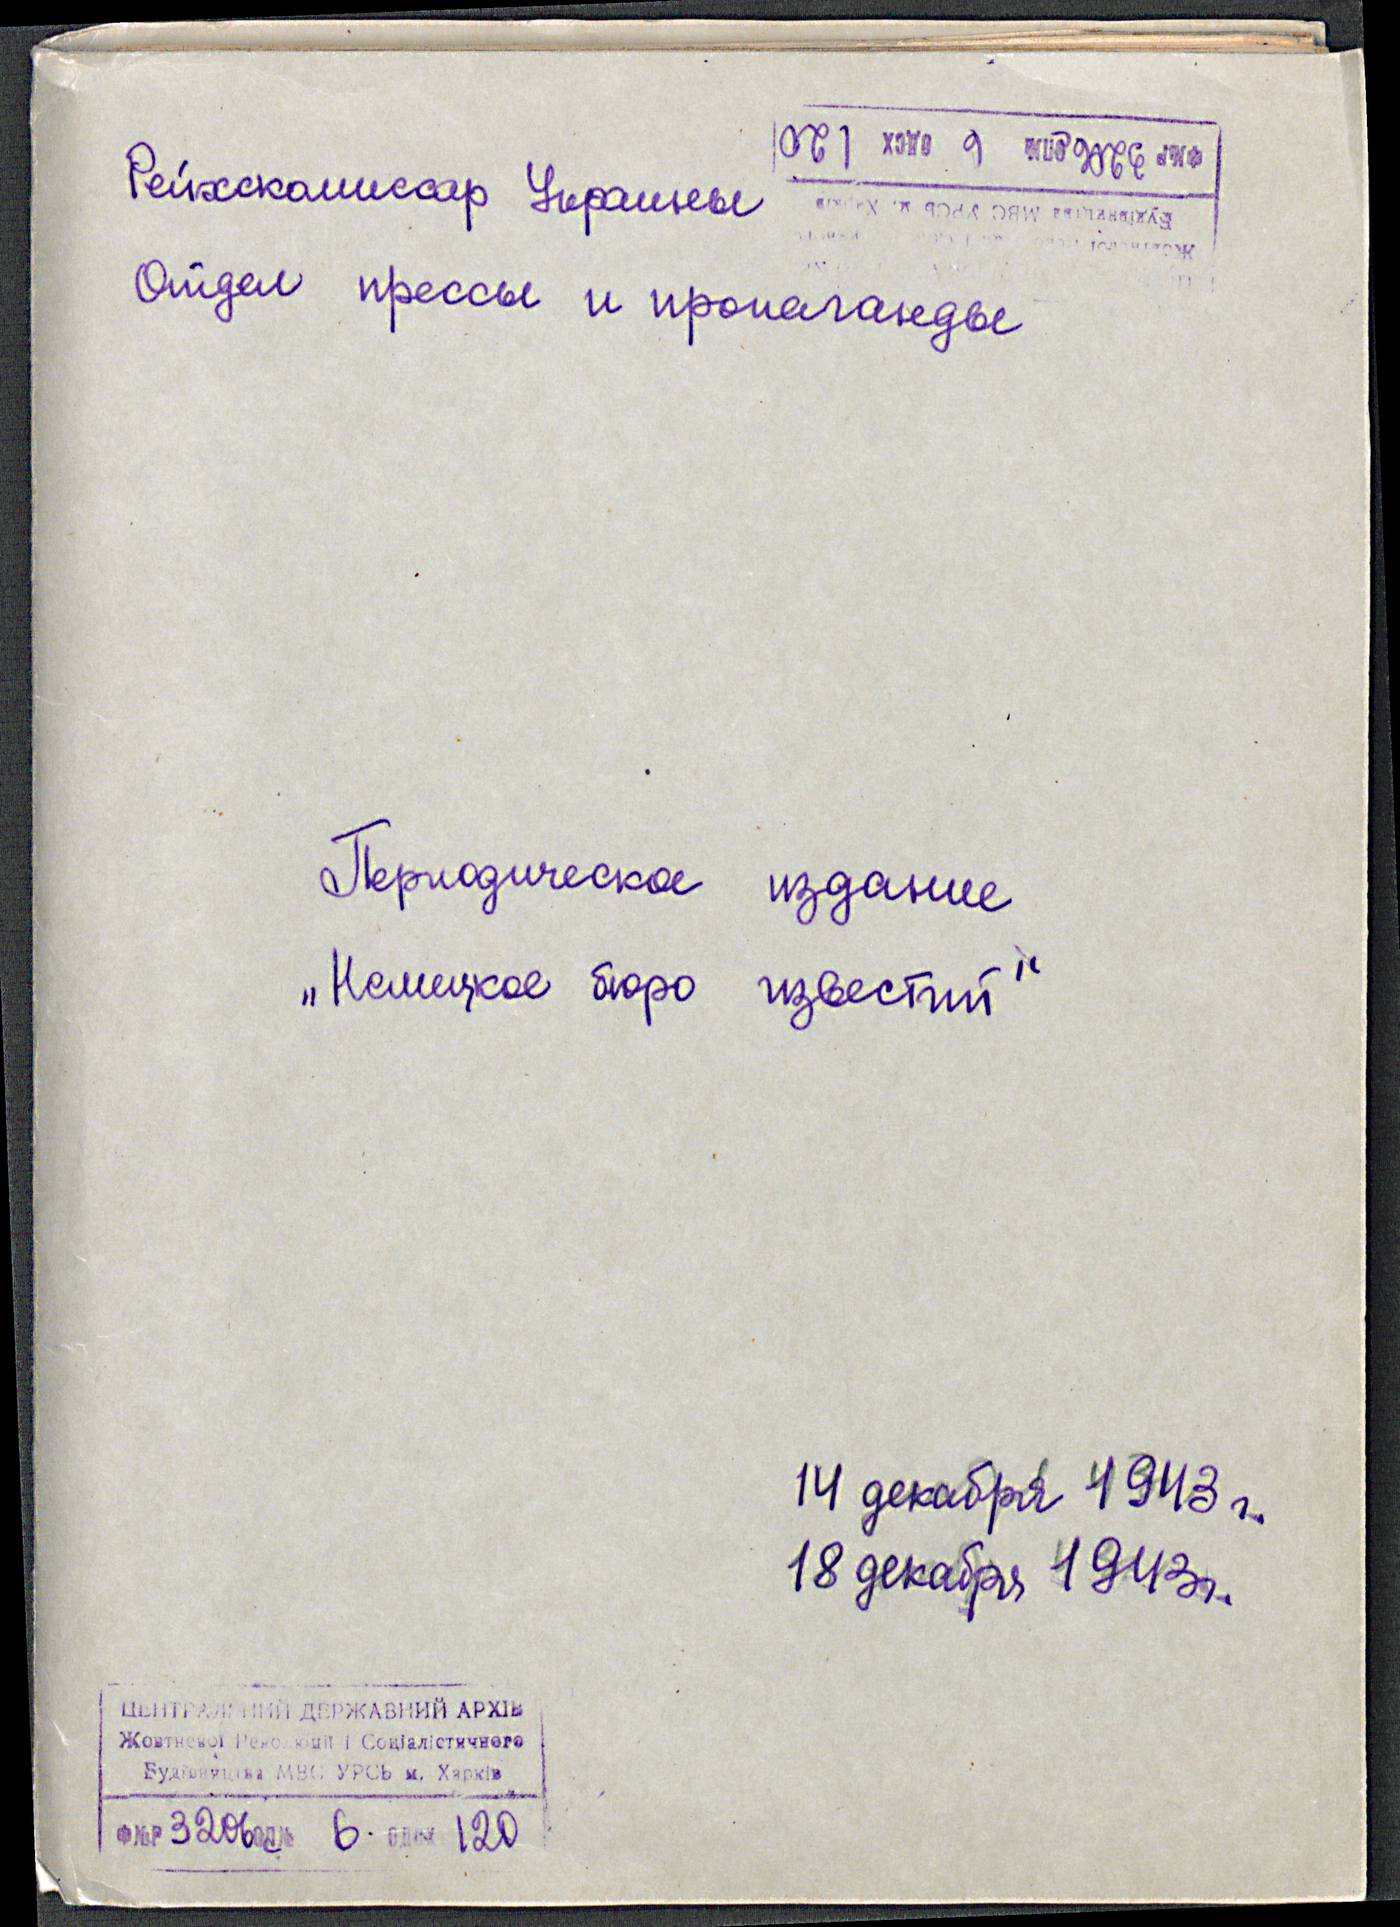 Рейхскомиссар Украины
Отдел прессы и пропаганды
Ф№Р 3206 ОП№ 6 ОДСХ 120
Будівництва МВС УРСР м. Харків
Периодическое издание
„Немецкое бюро известий"
14 декабря 1943 г.
18 декабря 1943 г.
ЦЕНТРАЛЬНИЙ ДЕРЖАВНИЙ АРХІВ
Жовтневої Революції і Соціалістичного
Будівництва МВС УРСР м. Харків
Ф№Р 3206с ОП№ 6. ОДСХ 120